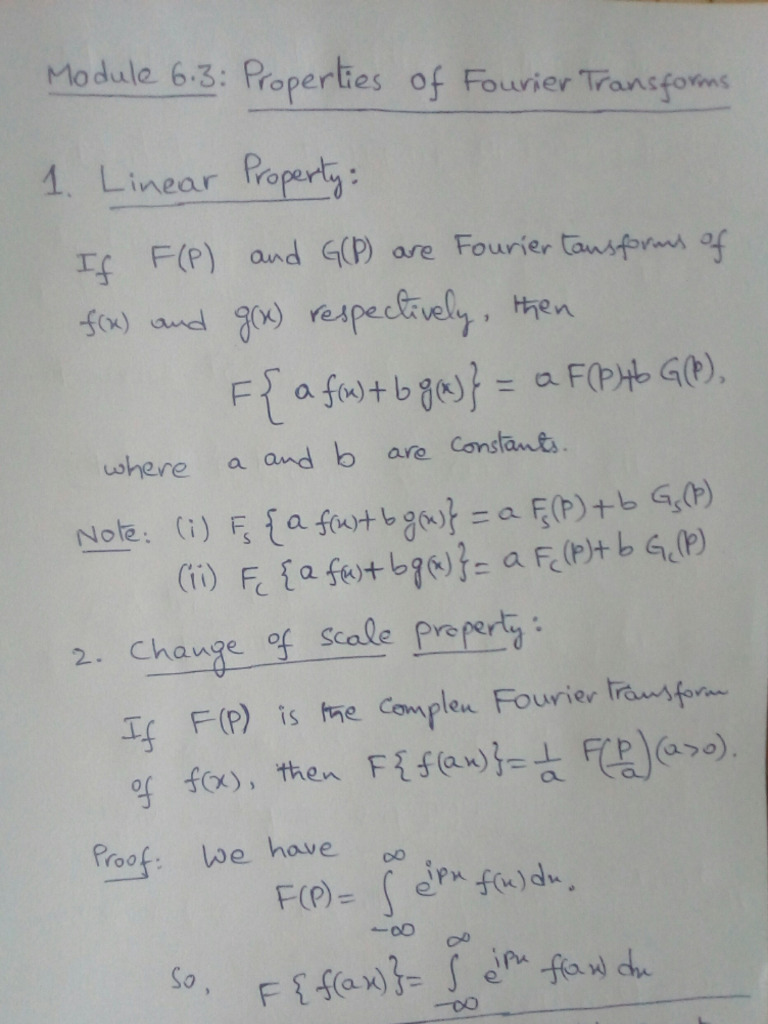 Module 6.3: Properties of Fourier Transforms
1. Linear Property:
If F(P) and G(P) are Fourier tansforms of
f(x) and g(x) respectively, then
F{ a f(x) + b g(x)} = a F(P)+b G(P),
where a and b are constants.
Note: (i) Fₛ {a f(x)+b g(x)} = a Fₛ(P)+b Gₛ(P)
(ii) F_c {a f(x)+b g(x)} = a F_c(P)+b G_c(P)
2. Change of scale property:
If F(P) is the complex Fourier transform
of f(x), then F{f(ax)} = 1/a F(P/a) (a>0).
Proof: We have
F(P) = ∫_{-∞}^{∞} e^{ipx} f(x) dx.
So, F{f(ax)} = ∫_{-∞}^{∞} e^{ipx} f(ax) dx